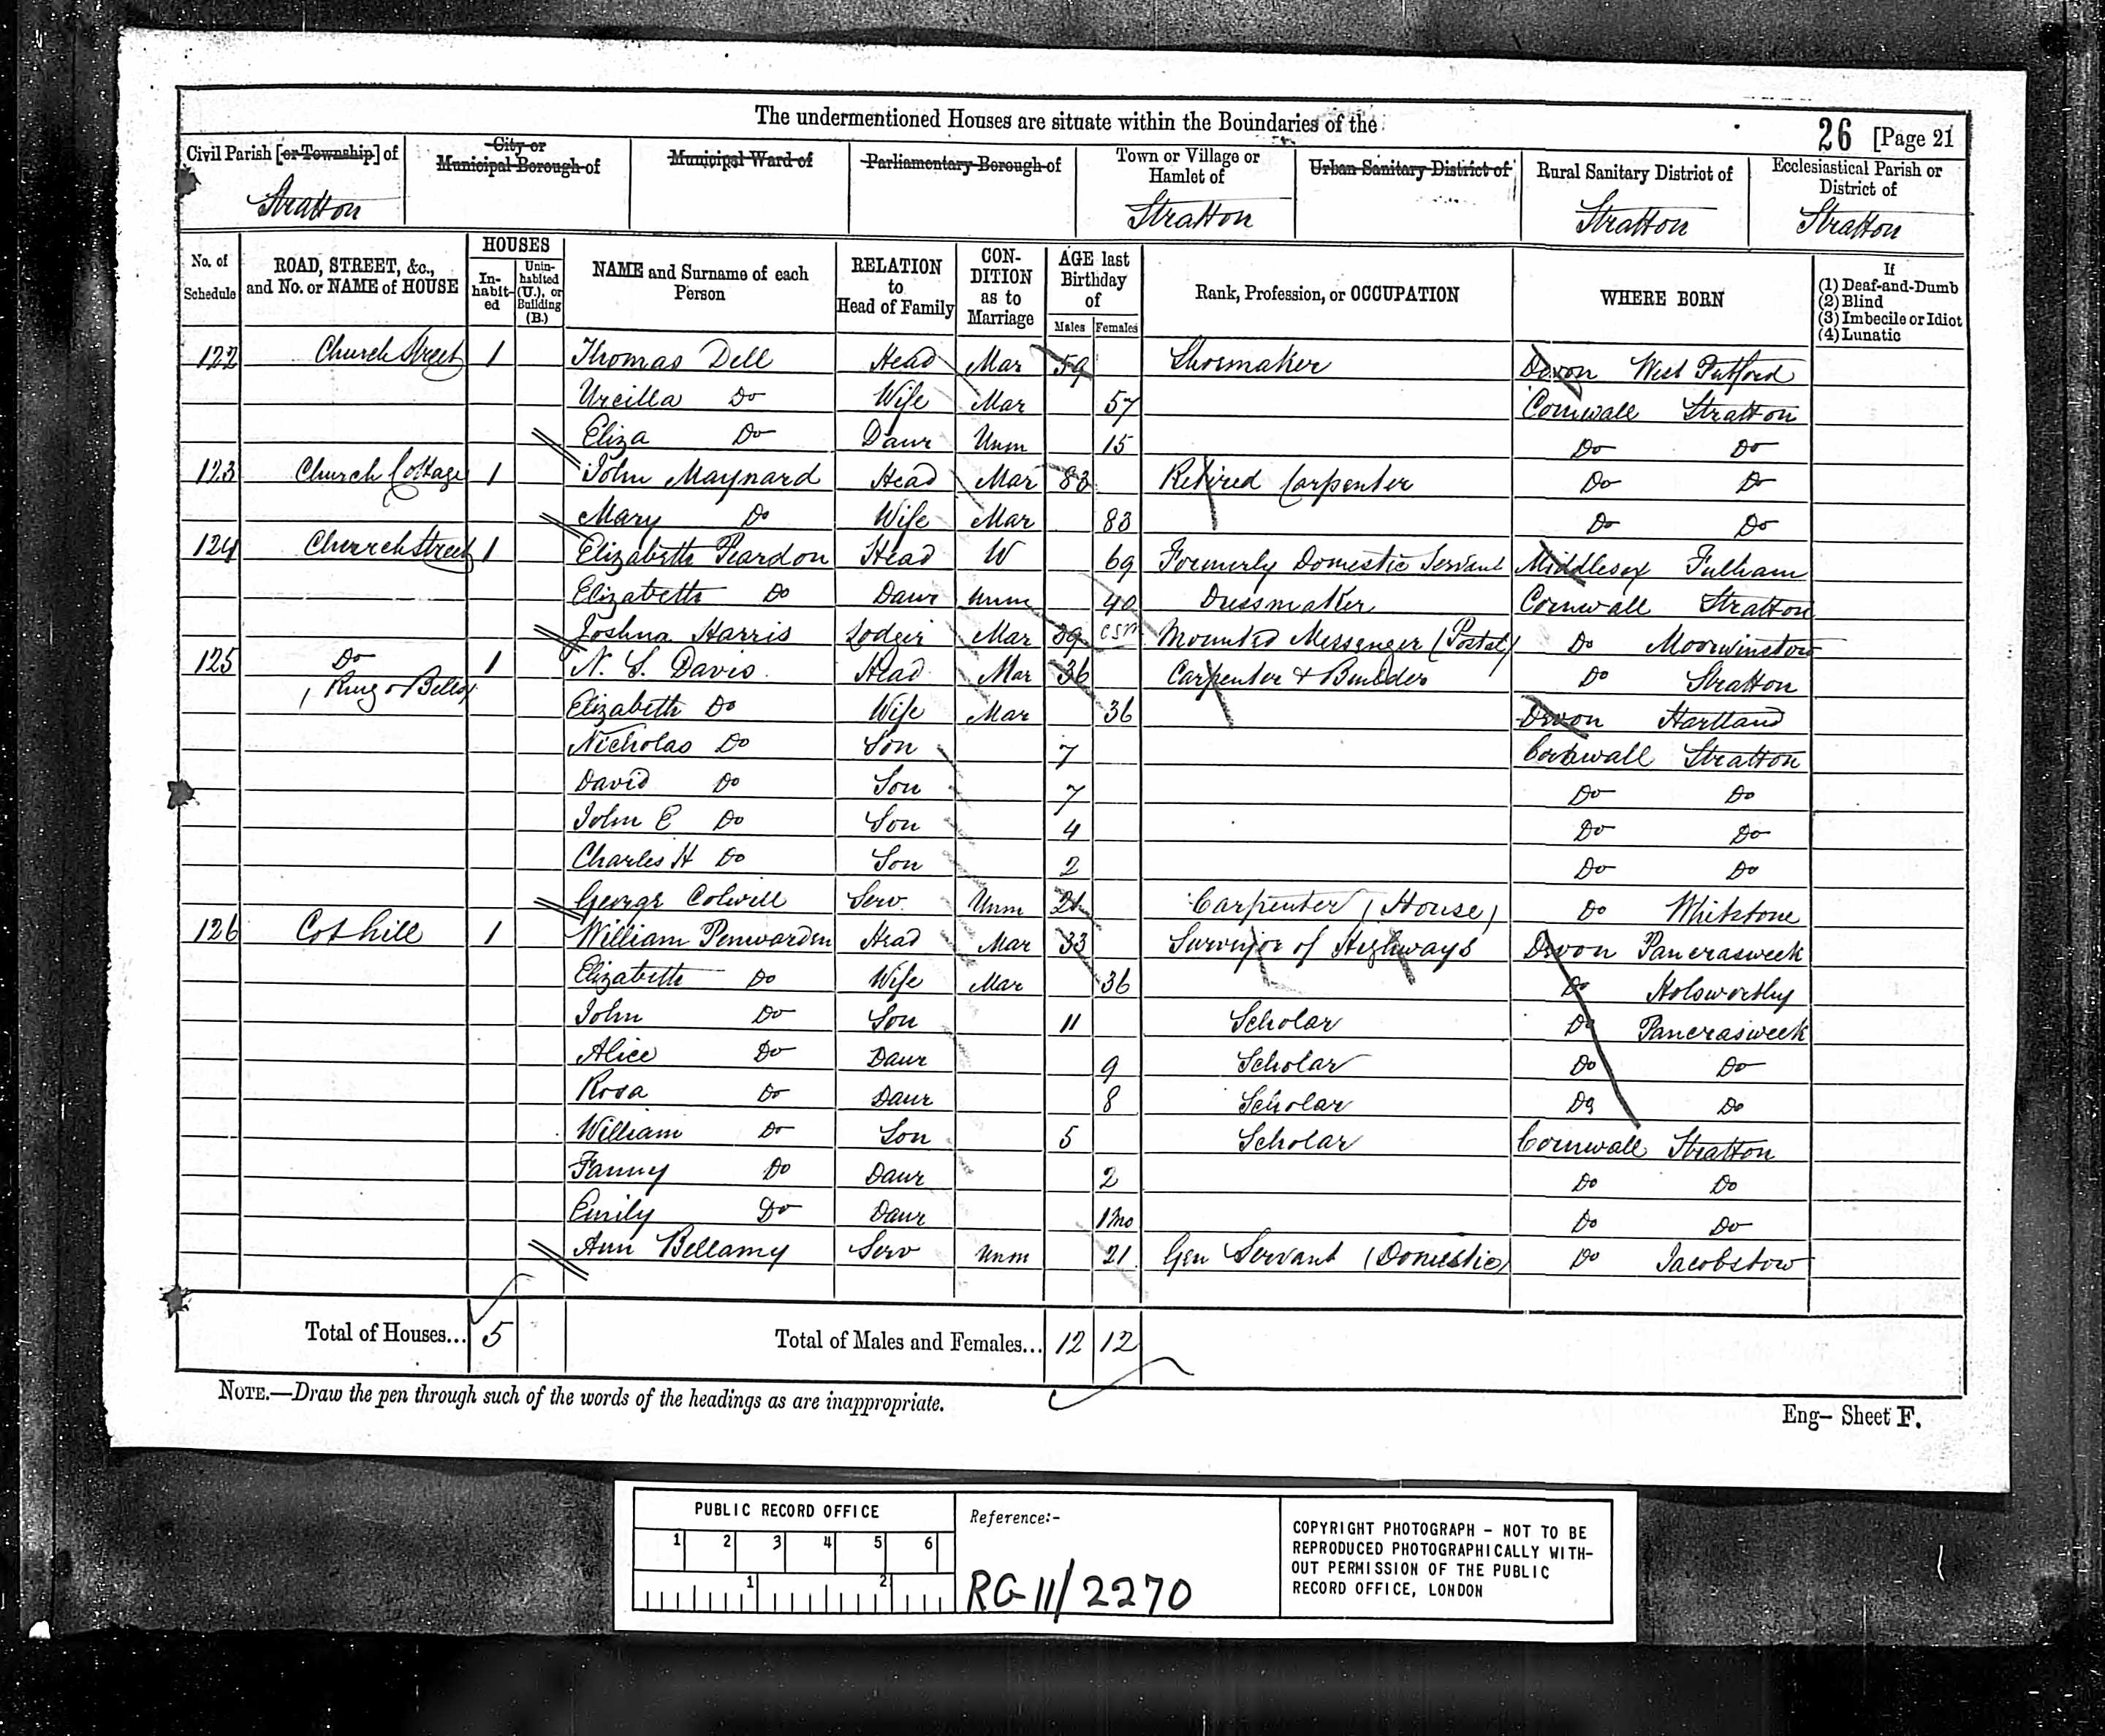 The undermentioned Houses are situate within the Boundaries of the
26 [Page 21
Civil Parish [or Township] of
Stratton
City or Municipal Borough of
Municipal Ward of
Parliamentary Borough of
Town or Village or Hamlet of
Stratton
Urban Sanitary District of
Rural Sanitary District of
Stratton
Ecclesiastical Parish or District of
Stratton
No. of Schedule
ROAD, STREET, &c., and No. or NAME of HOUSE
HOUSES
In-habit-ed
Unin-habited (U.), or Building (B.)
NAME and Surname of each Person
RELATION to Head of Family
CON-DITION as to Marriage
AGE last Birthday of
Males Females
Rank, Profession, or OCCUPATION
WHERE BORN
If
(1) Deaf-and-Dumb
(2) Blind
(3) Imbecile or Idiot
(4) Lunatic
122 Church Street 1 Thomas Dell Head Mar 59 Shoemaker Devon West Putford
Urcilla Do Wife Mar 57 Cornwall Stratton
Eliza Do Daur Unm 15 Do Do
123 Church Cottage 1 John Maynard Head Mar 83 Retired Carpenter Do Do
Mary Do Wife Mar 83 Do Do
124 Church Street 1 Elizabeth Peardon Head W 69 Formerly Domestic Servant Middlesex Fulham
Elizabeth Do Daur Unm 40 Dressmaker Cornwall Stratton
Joshua Harris Lodger Mar 39 Mounted Messenger (Postal) Do Moorwinstow
125 Do 1 N. S. Davis Head Mar 36 Carpenter & Builder Do Stratton
Ring o Bells Elizabeth Do Wife Mar 36 Devon Hartland
Nicholas Do Son 7 Cornwall Stratton
David Do Son 7 Do Do
John E Do Son 4 Do Do
Charles H Do Son 2 Do Do
George Colwill Serv Unm 21 Carpenter (House) Do Whitstone
126 Cot hill 1 William Penwarden Head Mar 33 Surveyor of Highways Devon Pancrasweek
Elizabeth Do Wife Mar 36 Do Holsworthy
John Do Son 11 Scholar Do Pancrasweek
Alice Do Daur 9 Scholar Do Do
Rosa Do Daur 8 Scholar Do Do
William Do Son 5 Scholar Cornwall Stratton
Fanny Do Daur 2 Do Do
Emily Do Daur 1mo Do Do
Ann Bellamy Serv Unm 21 Gen Servant (Domestic) Do Jacobstow
Total of Houses... 5 Total of Males and Females... 12 12
NOTE.—Draw the pen through such of the words of the headings as are inappropriate.
Eng- Sheet F.
PUBLIC RECORD OFFICE
1 2 3 4 5 6
1 2
Reference:-
RG 11/2270
COPYRIGHT PHOTOGRAPH - NOT TO BE
REPRODUCED PHOTOGRAPHICALLY WITH-
OUT PERMISSION OF THE PUBLIC
RECORD OFFICE, LONDON